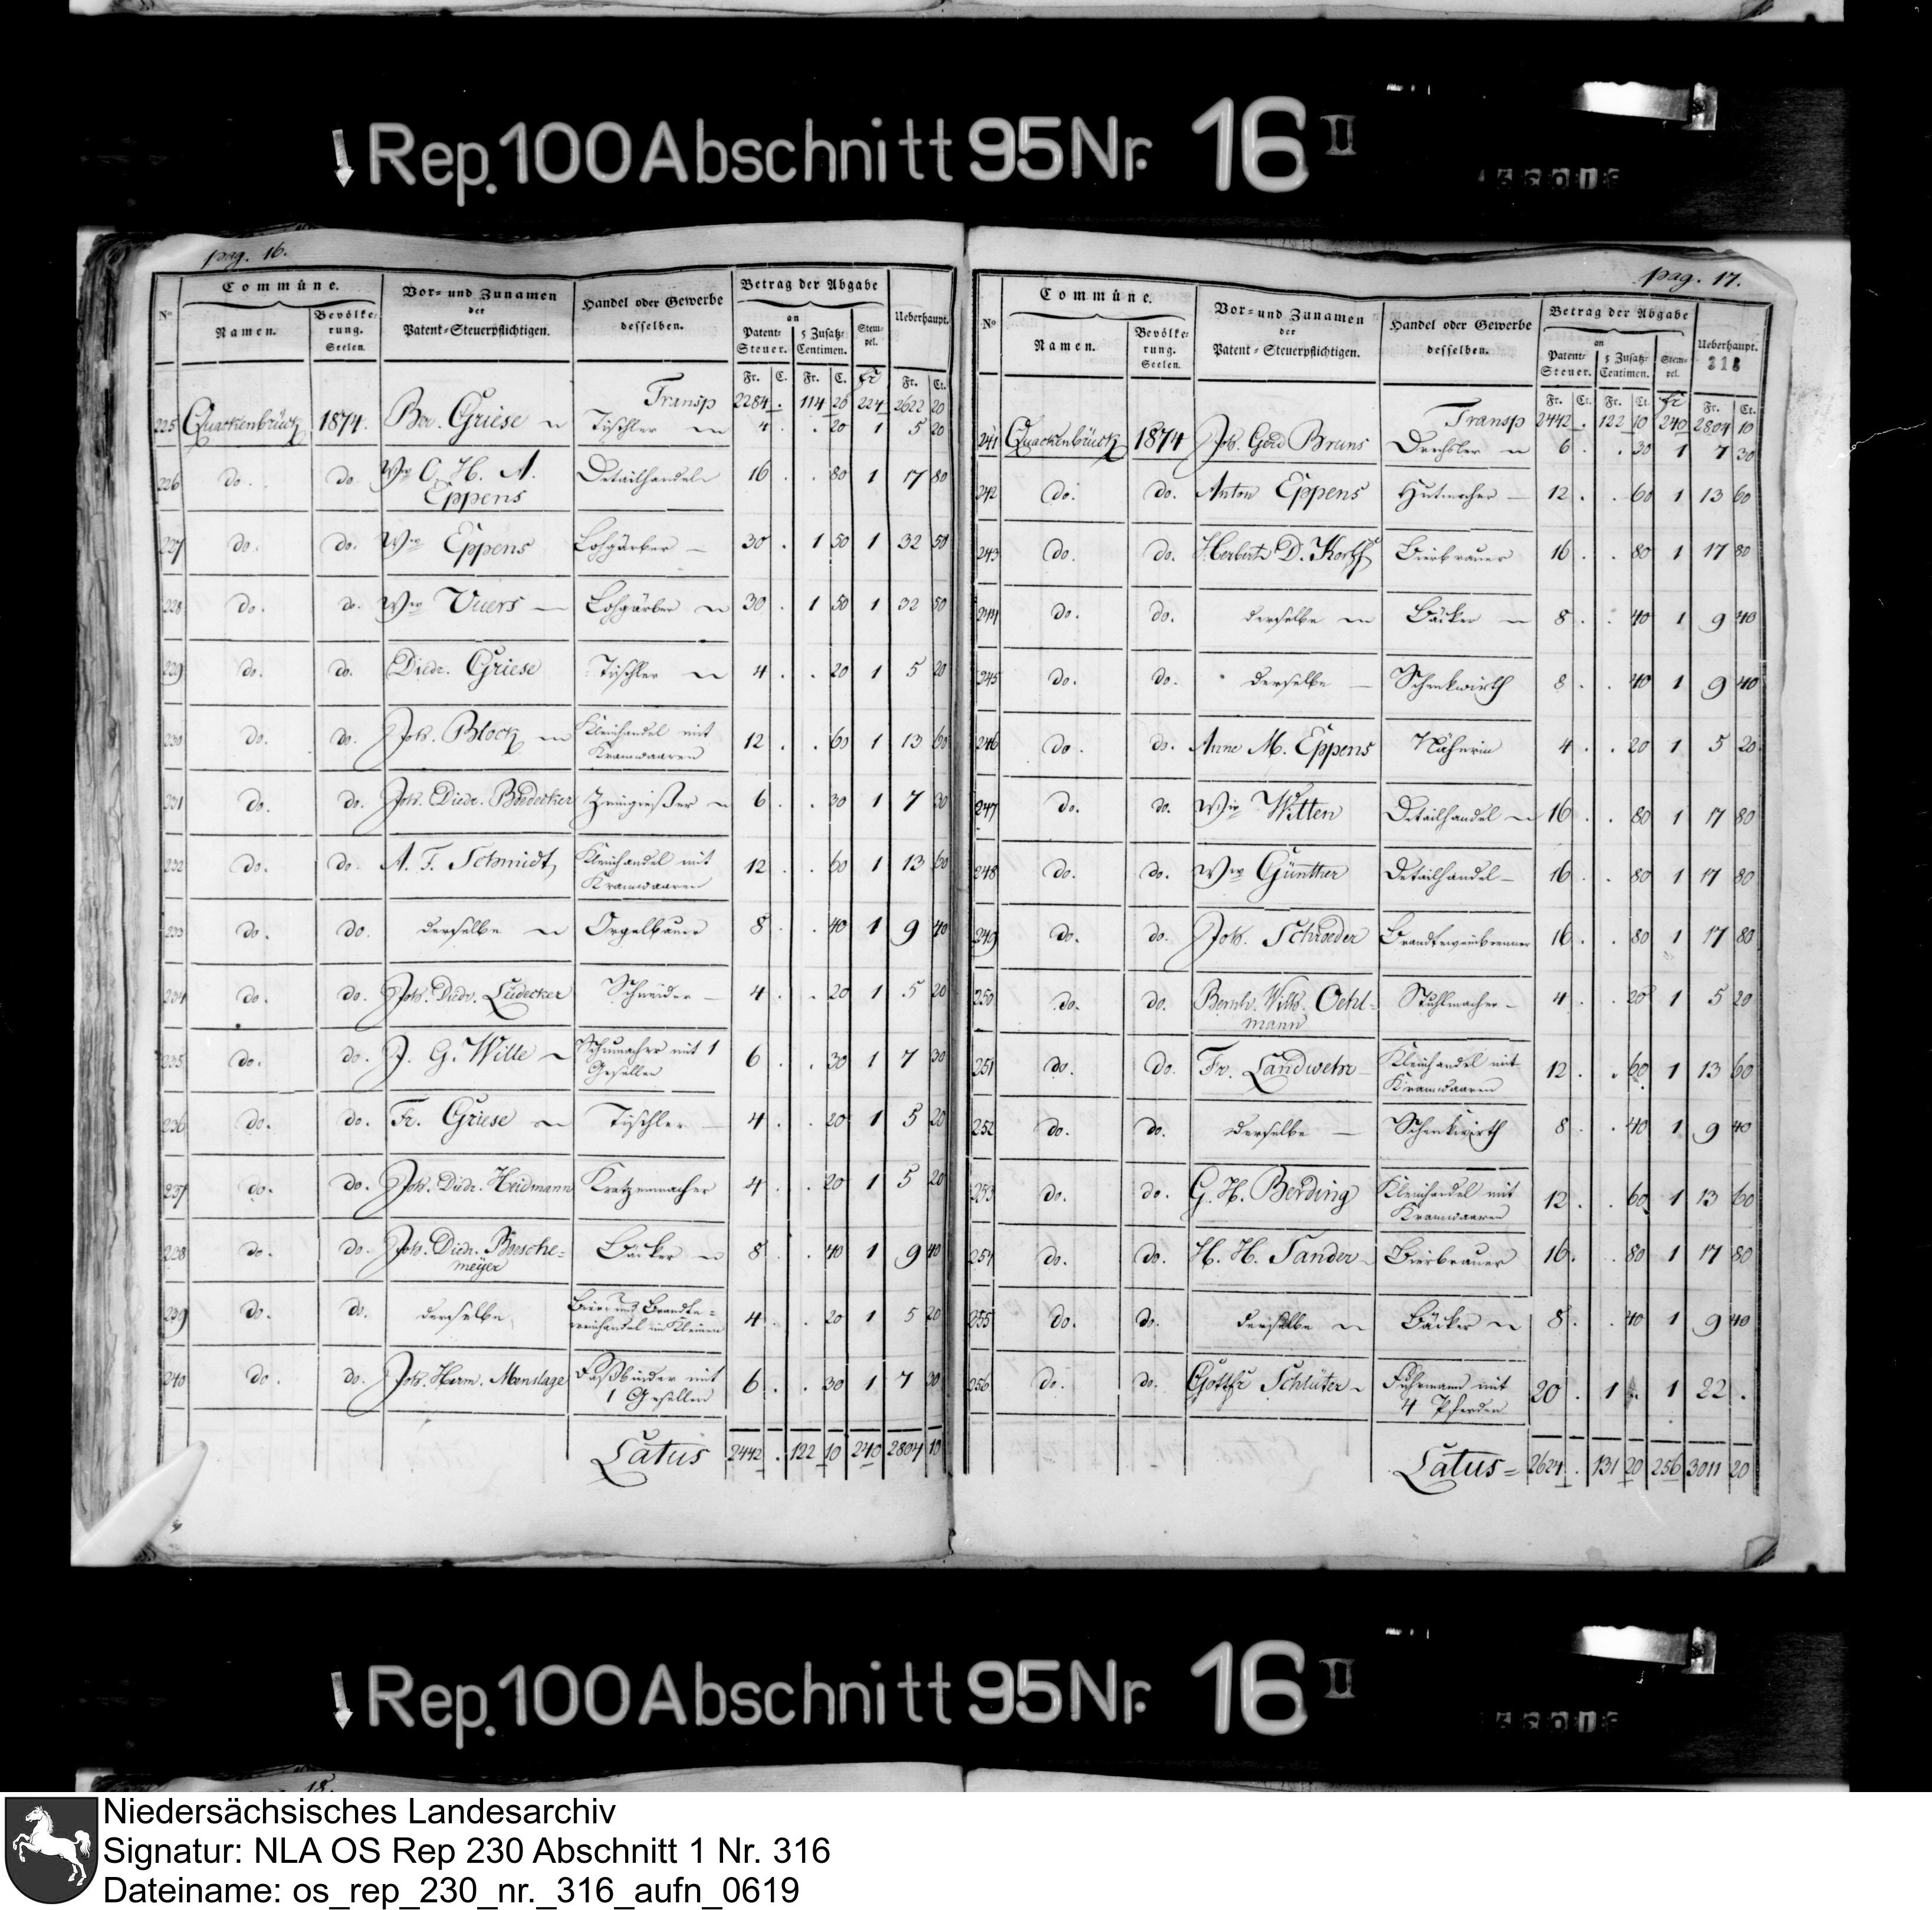 Rep. 100 Abschnitt 95 Nr. 16 II
pag. 16.
No Commüne. Vor- und Zunamen der Patent-Steuerpflichtigen. Handel oder Gewerbe desselben. Betrag der Abgabe Ueberhaupt.
Namen. Bevölkerung. Seelen. an Patent-Steuer. 5 Zusatz-Centimen. Stempel.
Fr. C. Fr. C. fr Fr. Ct.
Transp 2284 . 114 20 224 2622 20
225 Quackenbrück 1874. Ber. Griese Tischler 4 . . 20 1 5 20
226 do. do. Ww C. H. A. Eppens Detailhandel 16 . . 80 1 17 80
227 do. do. Ww Eppens Lohgärber 30 . 1 50 1 32 50
228 do. do. Ww Vuers Lohgärber 30 . 1 50 1 32 50
229 do. do. Diedr. Griese Tischler 4 . . 20 1 5 20
230 do. do. Joh. Block Kleinhandel mit Kramwaaren 12 . . 60 1 13 60
231 do. do. Joh. Diedr. Boedecker Zinngießer 6 . . 30 1 7 30
232 do. do. A. F. Schmidt Kleinhandel mit Kramwaaren 12 . . 60 1 13 60
233 do. do. derselbe Orgelbauer 8 . . 40 1 9 40
234 do. do. Joh. Diedr. Lüdecker Schneider 4 . . 20 1 5 20
235 do. do. J. G. Wille Schumacher mit 1 Gesellen 6 . . 30 1 7 30
236 do. do. Fr. Griese Tischler 4 . . 20 1 5 20
237 do. do. Joh. Diedr. Heidmann Kratzenmacher 4 . . 20 1 5 20
238 do. do. Joh. Diedr. Boeschemeyer Bäcker 8 . . 40 1 9 40
239 do. do. derselbe Bier und Brandteweinhandel im Kleinen 4 . . 20 1 5 20
240 do. do. Joh. Herm. Menslage Faßbinder mit 1 Gesellen 6 . . 30 1 7 30
Latus 2442 . 122 10 240 2804 10
pag. 17.
No Commüne. Vor- und Zunamen der Patent-Steuerpflichtigen. Handel oder Gewerbe desselben. Betrag der Abgabe Ueberhaupt.
318
Namen. Bevölkerung. Seelen. an Patent-Steuer. 5 Zusatz-Centimen. Stempel.
Fr. Ct. Fr. Ct. fr Fr. Ct.
Transp 2442 . 122 10 240 2804 10
241 Quackenbrück 1874 Joh. Gerd Bruns Drechsler 6 . . 30 1 7 30
242 do. do. Anton Eppens Hutmacher 12 . . 60 1 13 60
243 do. do. Herbertz D. Korff Bierbrauer 16 . . 80 1 17 80
244 do. do. derselbe Bäcker 8 . . 40 1 9 40
245 do. do. derselbe Schenkwirth 8 . . 40 1 9 40
246 do. do. Anne M. Eppens Näherin 4 . . 20 1 5 20
247 do. do. Ww Witten Detailhandel 16 . . 80 1 17 80
248 do. do. Ww Günther Detailhandel 16 . . 80 1 17 80
249 do. do. Joh. Schroeder Brandtweinbrenner 16 . . 80 1 17 80
250 do. do. Bernh. Wilh. Oehlmann Stuhlmacher 4 . . 20 1 5 20
251 do. do. Fr. Landwehr Kleinhandel mit Kramwaaren 12 . . 60 1 13 60
252 do. do. derselbe Schenkwirth 8 . . 40 1 9 40
253 do. do. G. H. Berding Kleinhandel mit Kramwaaren 12 . . 60 1 13 60
254 do. do. H. H. Sander Bierbrauer 16 . . 80 1 17 80
255 do. do. derselbe Bäcker 8 . . 40 1 9 40
256 do. do. Gottfr Schlüter Fuhrmann mit 4 Pferden 20 . 1 . 1 22 .
Latus = 2624 . 131 20 256 3011 20
Rep. 100 Abschnitt 95 Nr. 16 II
18.
Niedersächsisches Landesarchiv
Signatur: NLA OS Rep 230 Abschnitt 1 Nr. 316
Dateiname: os_rep_230_nr._316_aufn_0619